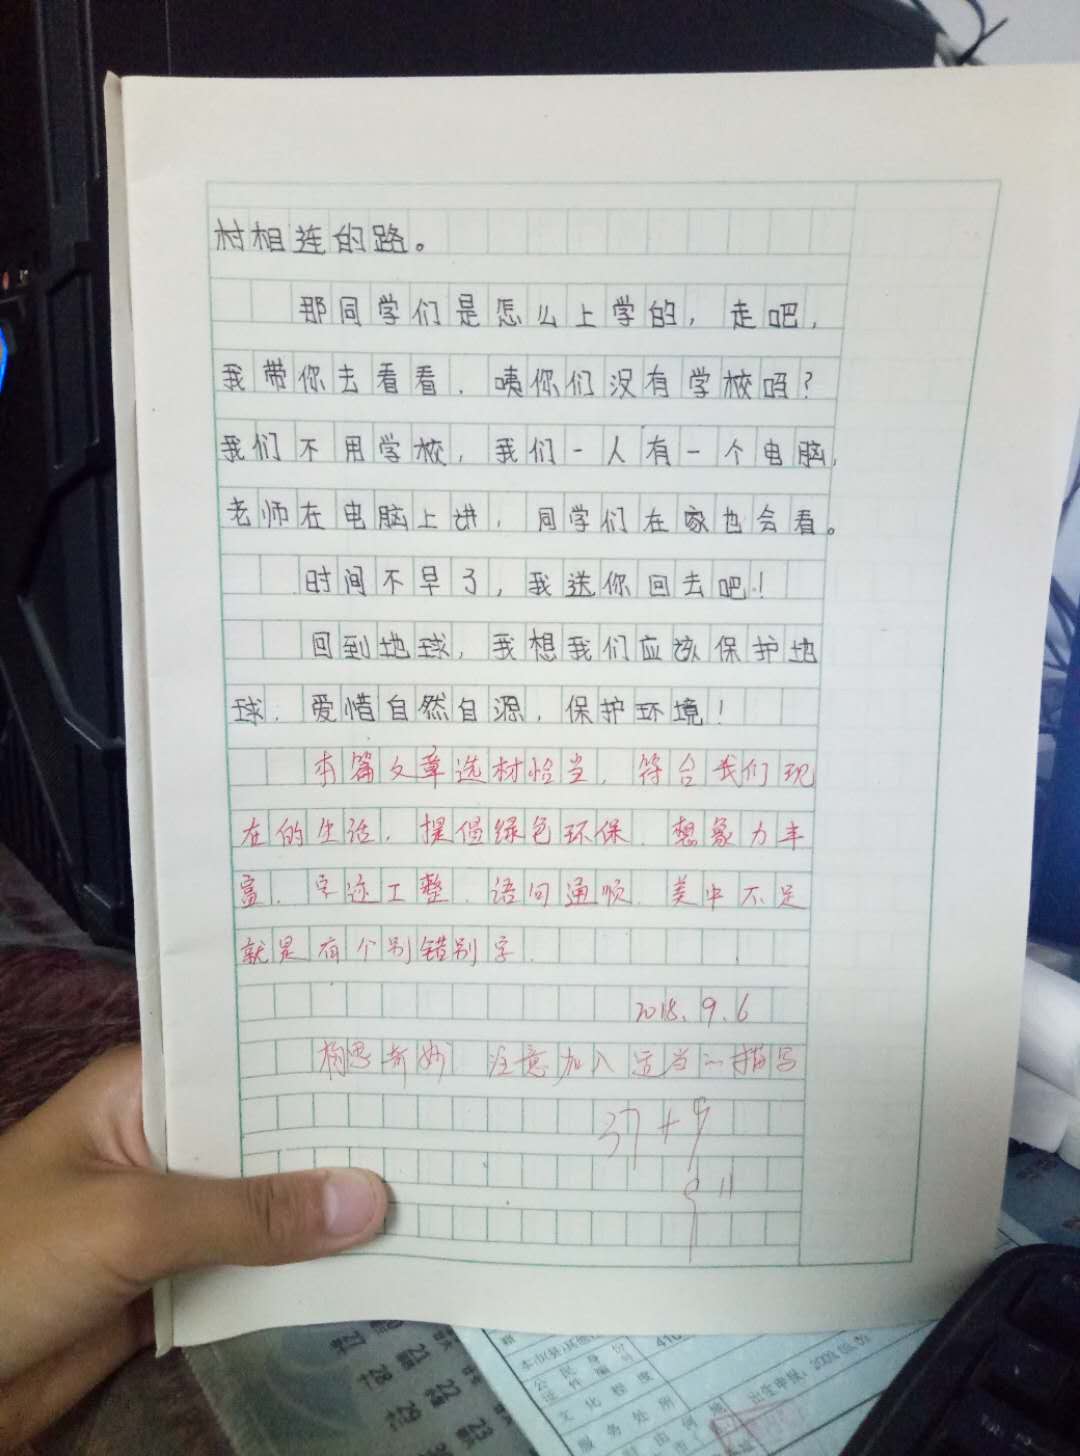 村相连的路。
那同学们是怎么上学的，走吧，
我带你去看看．咦你们没有学校吗？
我们不用学校，我们一人有一个电脑，
老师在电脑上讲，同学们在家也会看。
时间不早了，我送你回去吧！
回到地球，我想我们应该保护地
球．爱惜自然自源，保护环境！
本篇文章选材恰当．符合我们现
在的生活．提倡绿色环保．想象力丰
富．字迹工整．语句通顺．美中不足
就是有个别错别字．
2018.9.6
构思奇妙 注意加入适当的描写
37+9
9 11
本市(县)其他
公民身份
证件编号
文化程度
服务处所